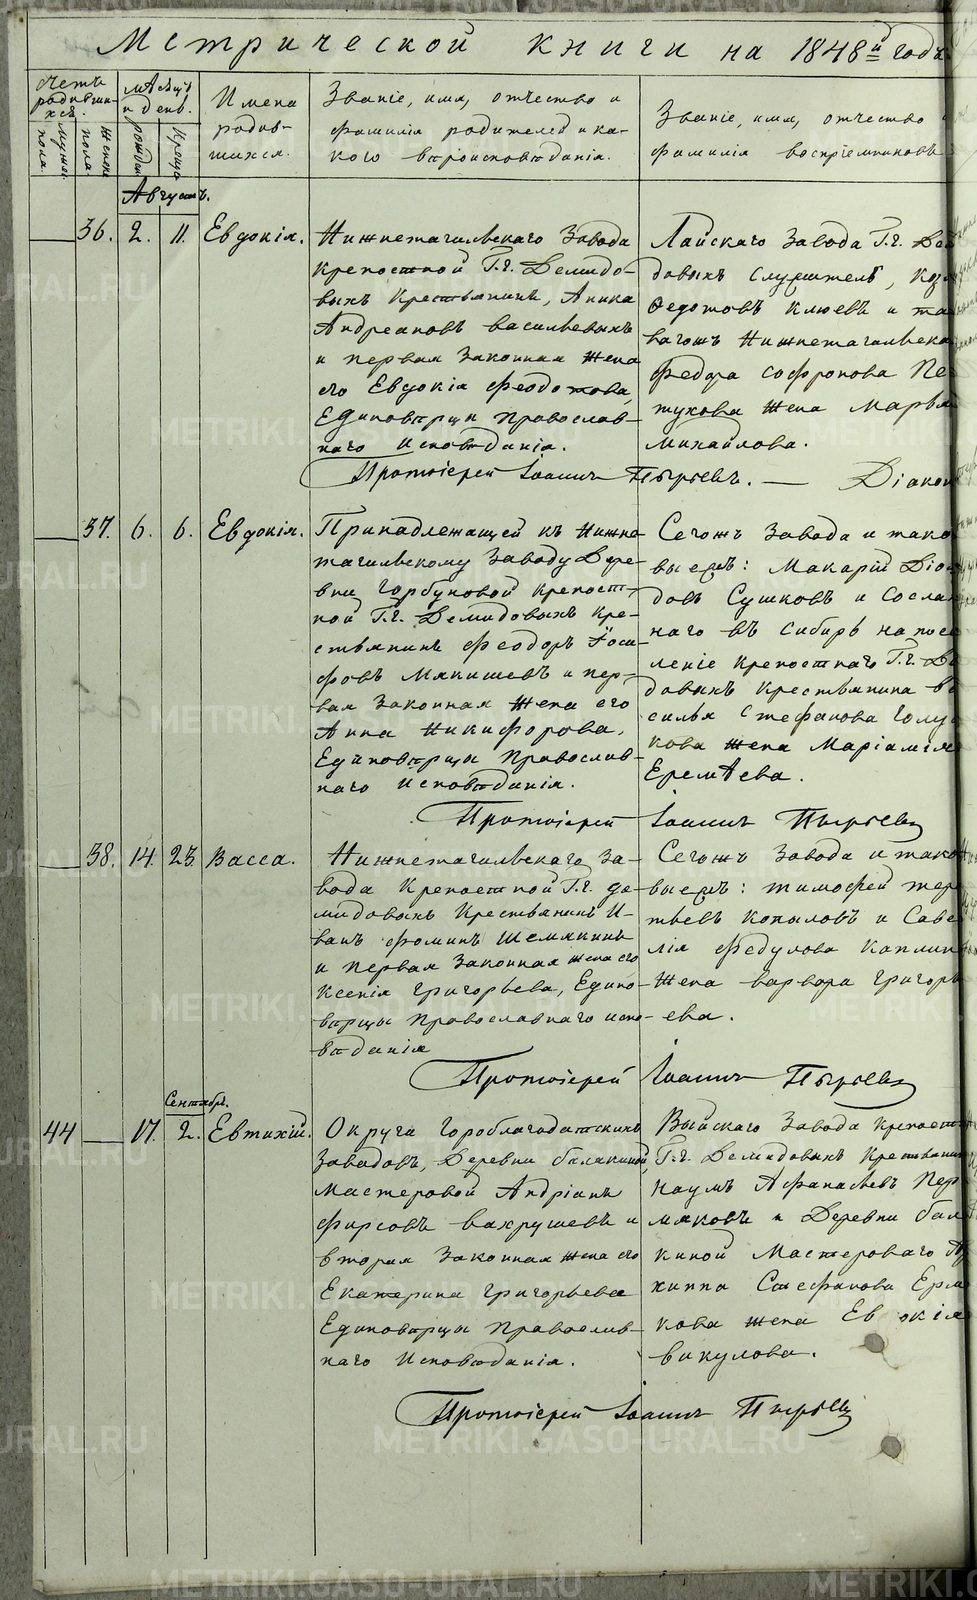 Метрической книги на 1848й годъ
Счетъ родившихся.
мужес. пола
Женска пола
мѣсяцъ и день.
рожден
Крещ.
Имена
родив-
шихся.
Званіе, имя, отчество и
фамилія родителей и ка-
кого вѣроисповѣданія.
Званіе, имя, отчество
фамилія воспріемниковъ
Августъ.
36. 2. 11. Евдокія.
Нижнетагильскаго Завода
крепостной Г.г. Демидо-
выхъ Крестьянинъ, Аника
Андреановъ васильевыхъ
и первая Законная жена
его Евдокія Феодотова,
Единоверцы Православ-
наго исповѣданія.
Лайскаго Завода Г.г. Де
довыхъ служитель,
Федотовъ Клюевъ и
вагожъ Нижнетагильска
Федора Софронова Пе
тухова жена Марья
михайлова.
Протоіерей Іоаннъ Пырьевъ. — Діакон
37. 6. 6. Евдокія.
Принадлежащей къ Нижне
тагильскому Заводу Дере-
вни Горбуновой крепост-
ной Г.г. Демидовыхъ кре-
стьянинъ Феодоръ Іоси-
фовъ Мякишевъ и пер-
вая Законная Жена его
Анна Никифорова,
Единоверцы Православ-
наго исповѣданія.
Сегожъ Завода и тако
выежъ: Макарій
довъ Сушковъ и сослан
наго въ Сибирь на посе
леніе крепостнаго Г.г. Де
довыхъ крестьянина ва
силья Стефанова Голу
кова жена Маріамія
Еремѣева.
Протоіерей Іоаннъ Пырьевъ
38. 14. 23. Васса.
Нижнетагильскаго За-
вода Крепостной Г.г. де-
мидовыхъ Крестьянинъ И-
ванъ Фоминъ Шемякинъ
и первая Законная жена его
Ксенія Григорьева, Едино-
верцы Православнаго испо-
веданія
Сегожъ Завода и тако
выежъ: тимофей тере
тьевъ Копыловъ и Саве
лія Федулова Каплин
Жена варвара Григорь
ева.
Протоіерей Іоаннъ Пырьевъ
Сентябрь.
44 17. 2. Евтихій.
Округа Гороблагодатскихъ
Заводовъ, Деревни балакиной,
мастеровой Андріанъ
фирсовъ вахрушевъ и
вторая Законная жена его
Екатерина Григорьева
Единоверцы Православ-
наго исповѣданія.
Выйскаго Завода крепост
Г.г. Демидовыхъ Крестьянин
Наумъ Афанасьевъ Пер
мяковъ и Деревни бала
киной Мастероваго Ар
хиппа Стефанова Ерма
кова жена Ев окія
викулова.
Протоіерей Іоаннъ Пырьевъ
METRIKI.GASO-URAL.RU